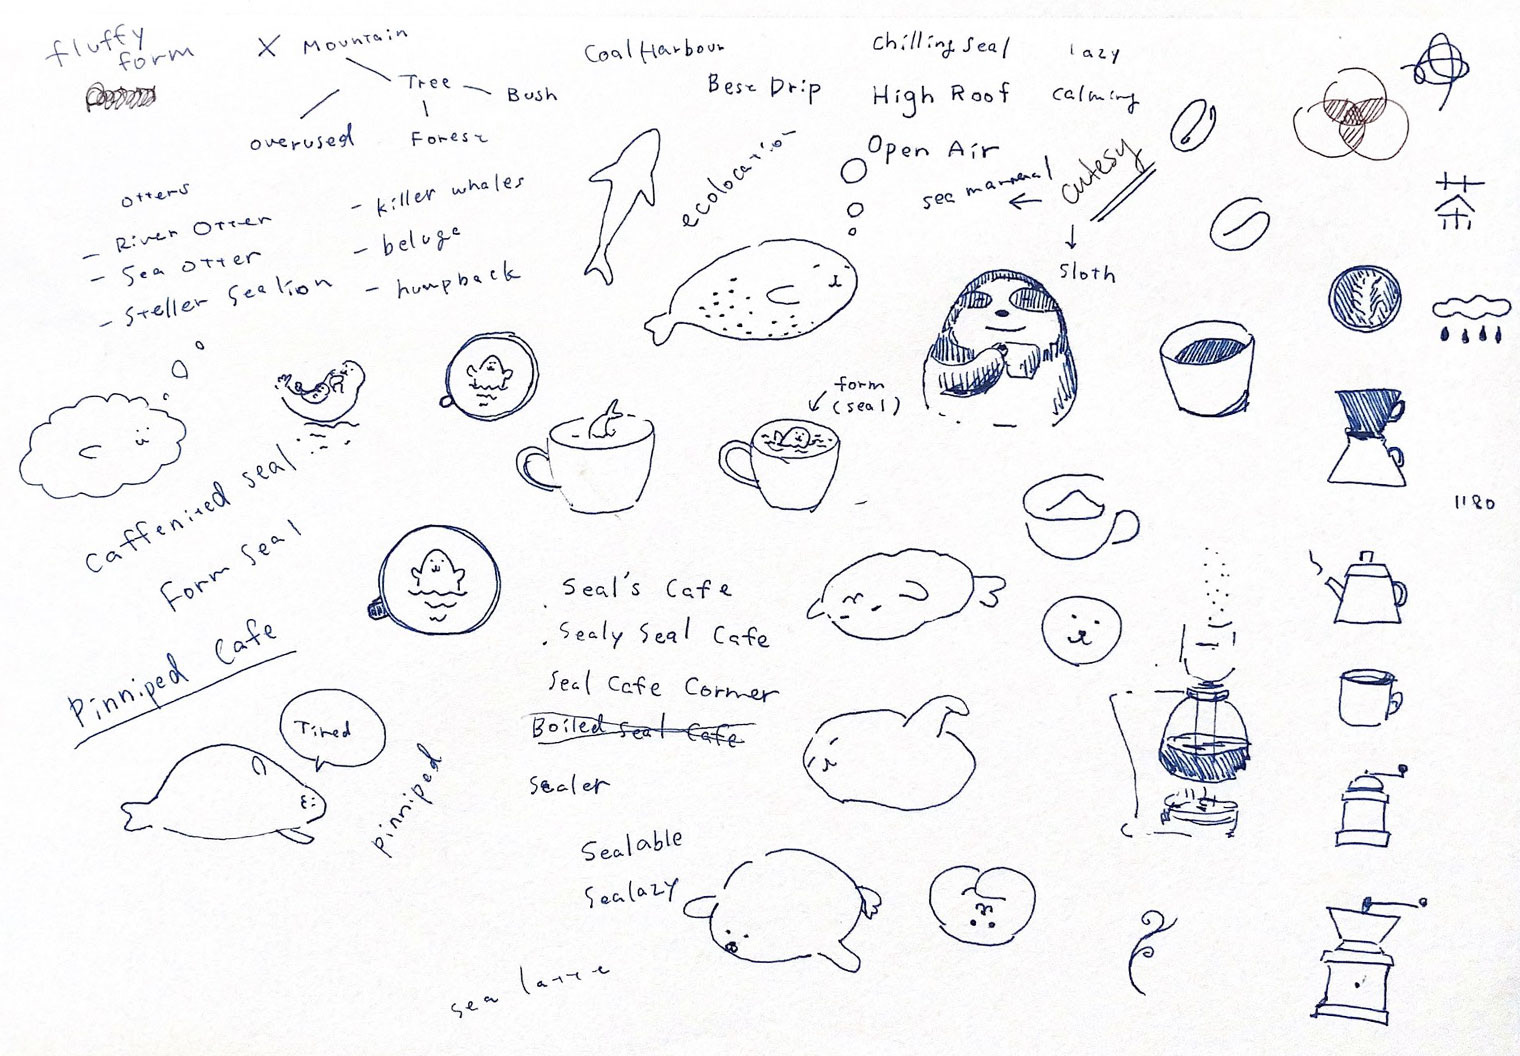 fluffy
form
X Mountain
Tree
Bush
overused
Forest
Coal Harbour
Best Drip
Chilling seal
lazy
High Roof
calming
Open Air
cutesy
sea mammal
sloth
ecolocation
otters
- River Otter
- Sea Otter
- Steller Sealion
- killer whales
- beluga
- humpback
form
(seal)
1180
Caffenited seal
Form Seal
Pinniped Cafe
Tired
pinniped
Seal's Cafe
. Sealy Seal Cafe
Seal Cafe Corner
Boiled Seal Cafe
Sealer
Sealable
Sealazy
sea latte